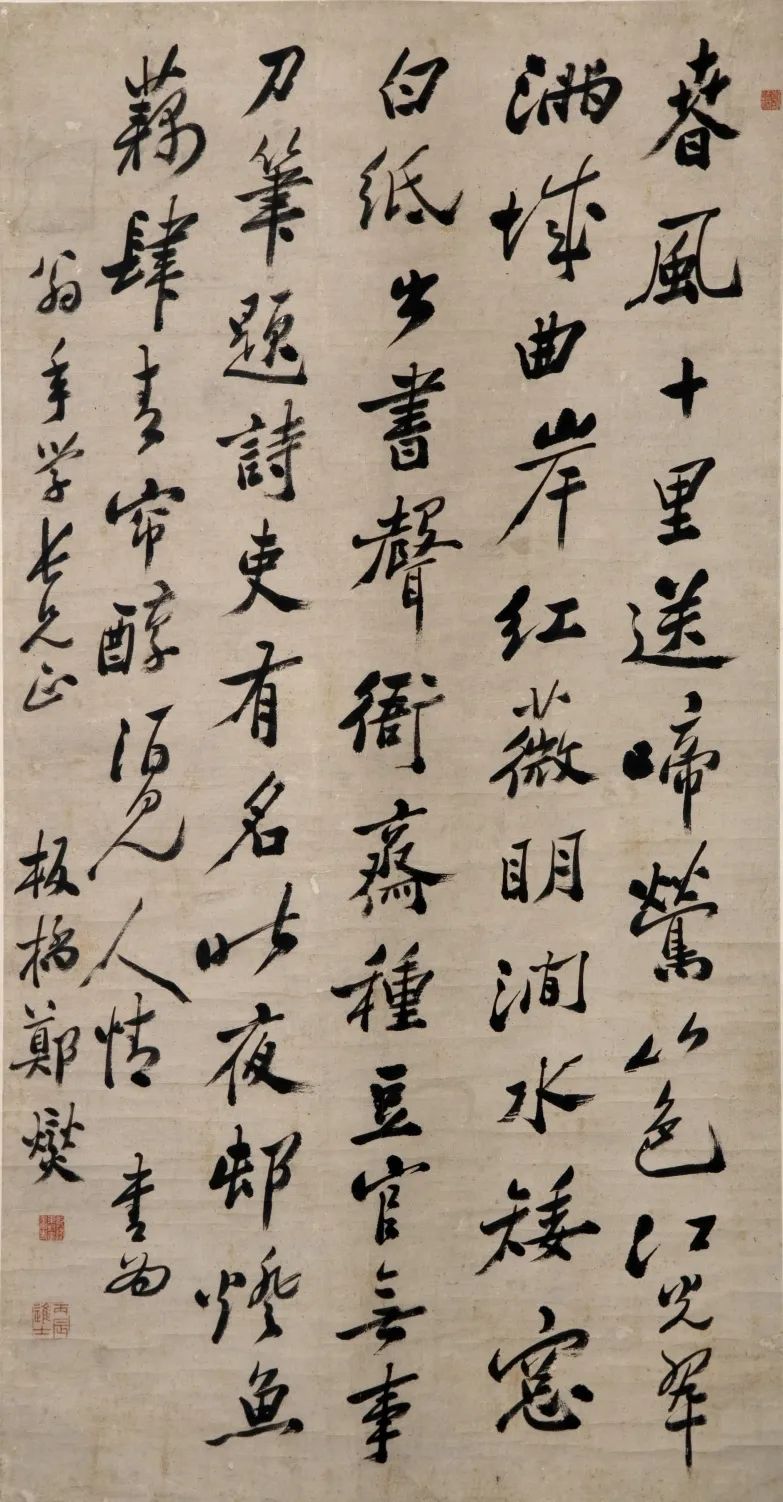 春風十里送啼鶯山色江光翠
滿城曲岸紅薇明澗水矮窓
白紙出書聲衙齋種豆官無事
刀筆題詩吏有名昨夜邨燈魚
藕肆青帘醇酒見人情 書為
翁年学長兄正 板橋鄭燮
丙辰進士